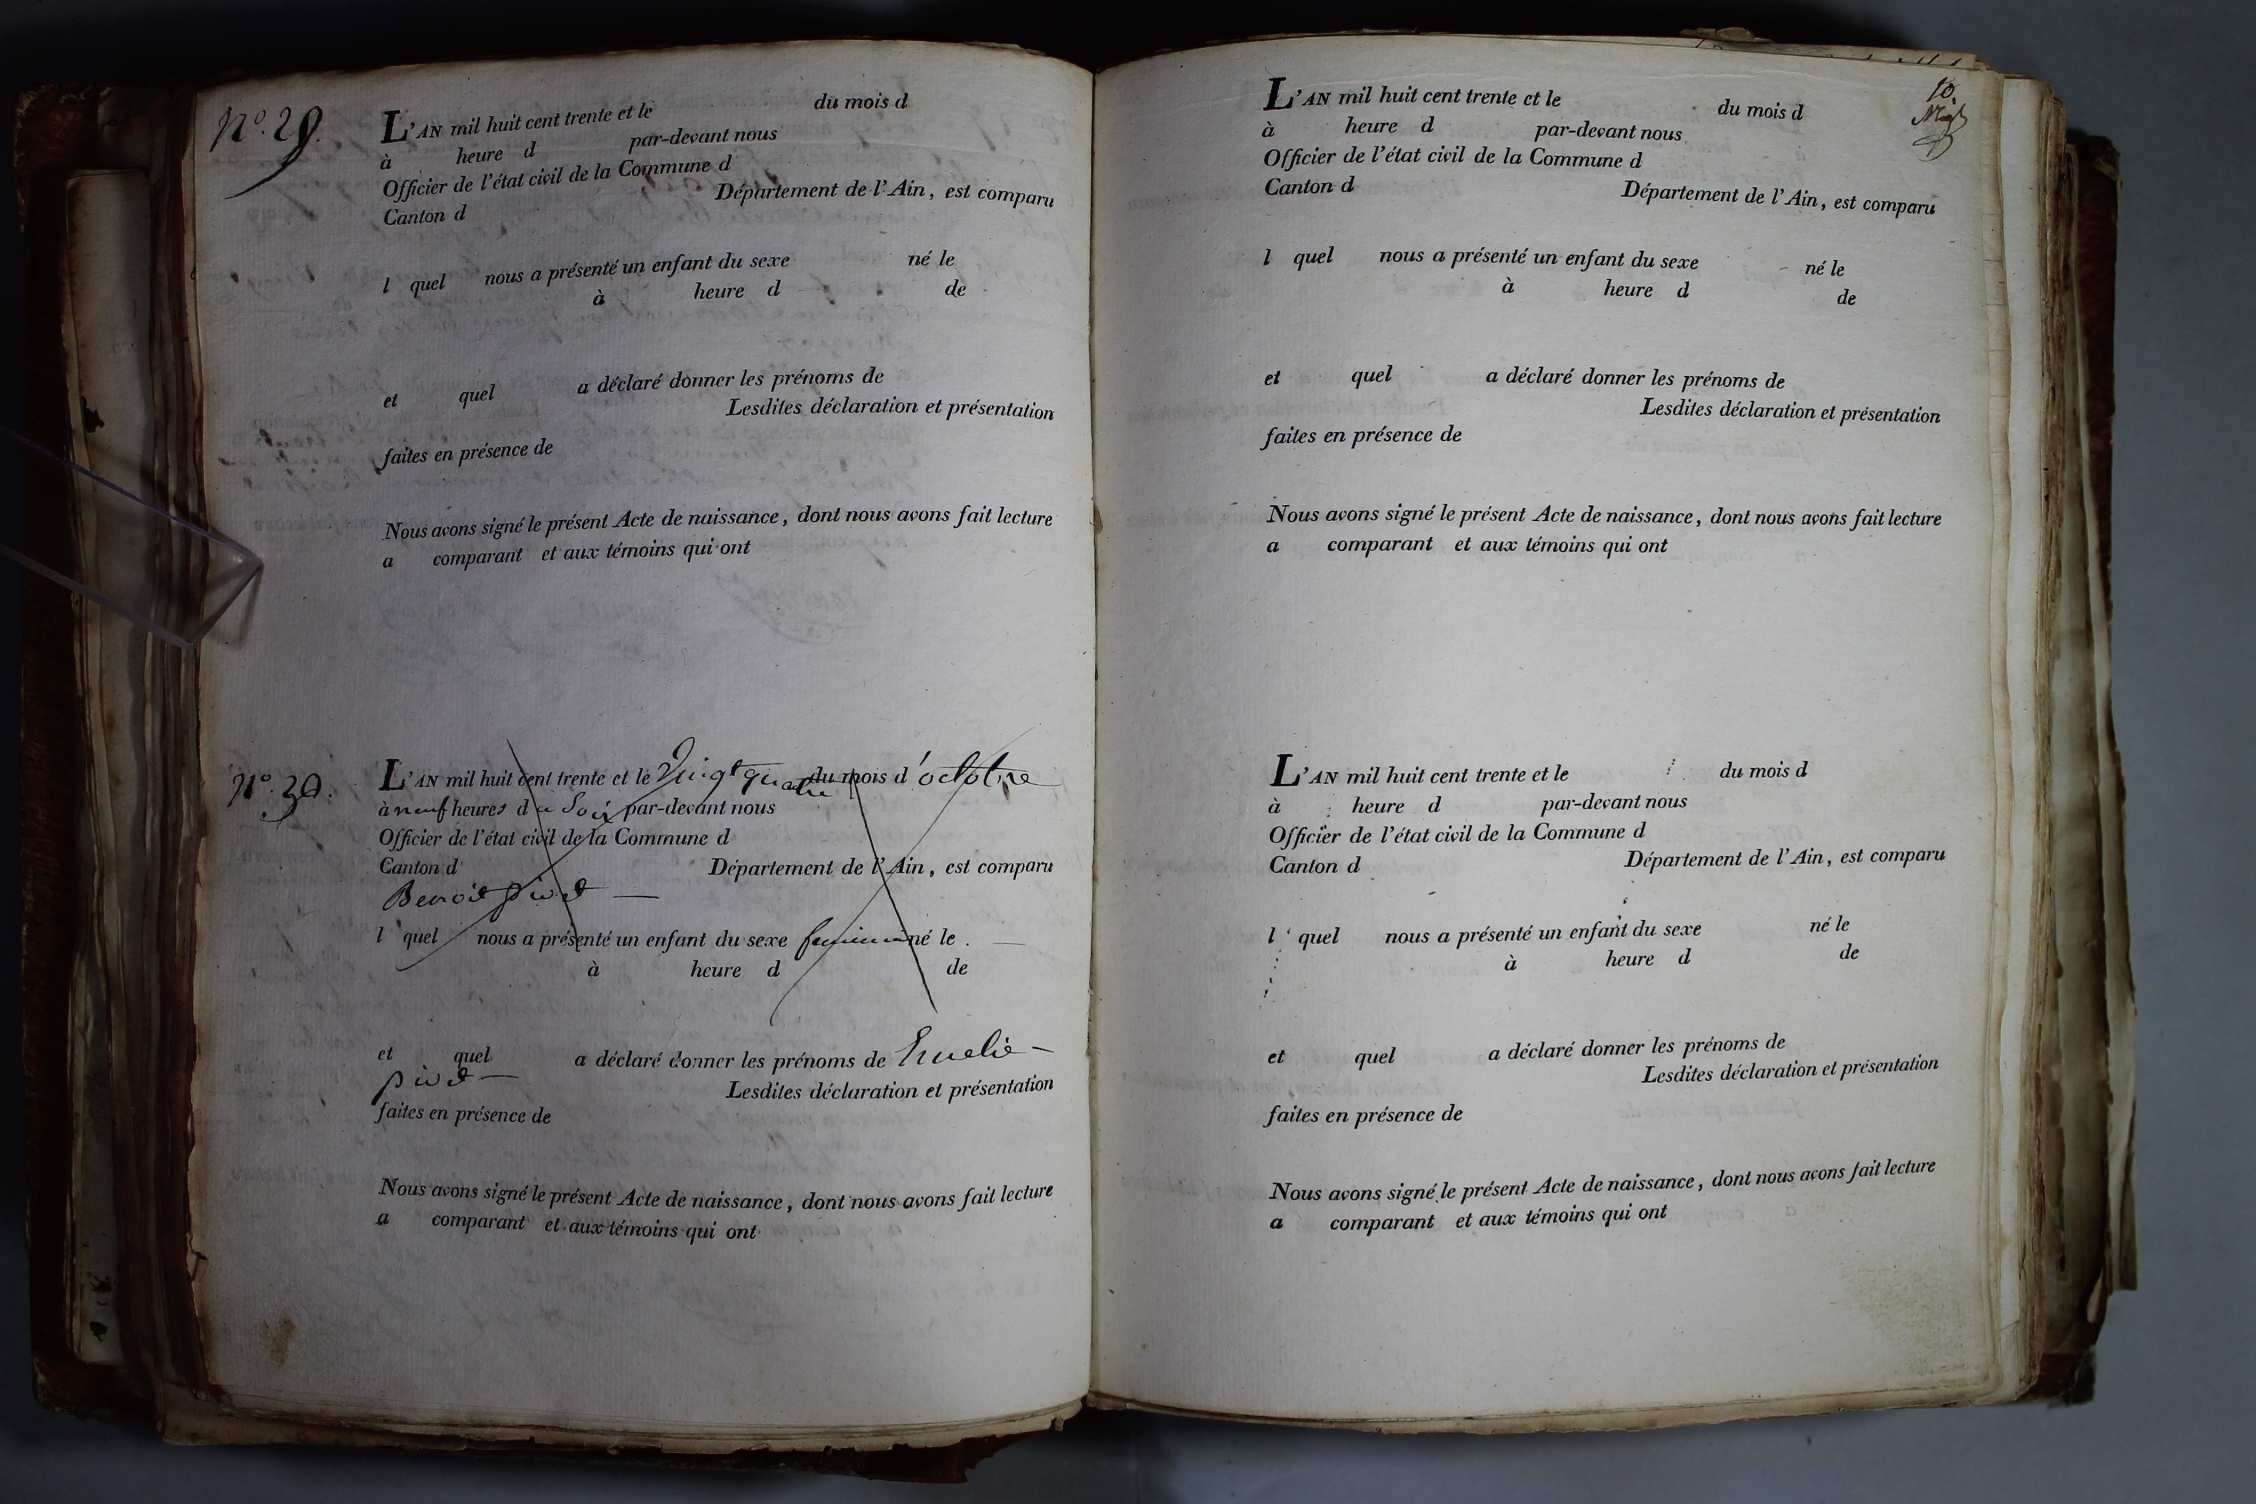 N.º 29.
L'AN mil huit cent trente et le du mois d
à heure d par-devant nous
Officier de l'état civil de la Commune d
Canton d Département de l'Ain, est comparu
l quel nous a présenté un enfant du sexe né le
à heure d de
et quel a déclaré donner les prénoms de
Lesdites déclaration et présentation
faites en présence de
Nous avons signé le présent Acte de naissance, dont nous avons fait lecture
a comparant et aux témoins qui ont
N.º 30.
L'AN mil huit cent trente et le Vingt quatre du mois d'octobre
à neuf heures du Soir par-devant nous
Officier de l'état civil de la Commune d
Canton d Département de l'Ain, est comparu
Benoit pivet —
l quel nous a présenté un enfant du sexe feminin né le . —
à heure d de
et quel a déclaré donner les prénoms de Emelie —
pivet —
Lesdites déclaration et présentation
faites en présence de
Nous avons signé le présent Acte de naissance, dont nous avons fait lecture
a comparant et aux témoins qui ont
10.
L'AN mil huit cent trente et le du mois d
à heure d par-devant nous
Officier de l'état civil de la Commune d
Canton d Département de l'Ain, est comparu
l quel nous a présenté un enfant du sexe né le
à heure d de
et quel a déclaré donner les prénoms de
Lesdites déclaration et présentation
faites en présence de
Nous avons signé le présent Acte de naissance, dont nous avons fait lecture
a comparant et aux témoins qui ont
L'AN mil huit cent trente et le du mois d
à heure d par-devant nous
Officier de l'état civil de la Commune d
Canton d Département de l'Ain, est comparu
l quel nous a présenté un enfant du sexe né le
à heure d de
et quel a déclaré donner les prénoms de
Lesdites déclaration et présentation
faites en présence de
Nous avons signé le présent Acte de naissance, dont nous avons fait lecture
a comparant et aux témoins qui ont